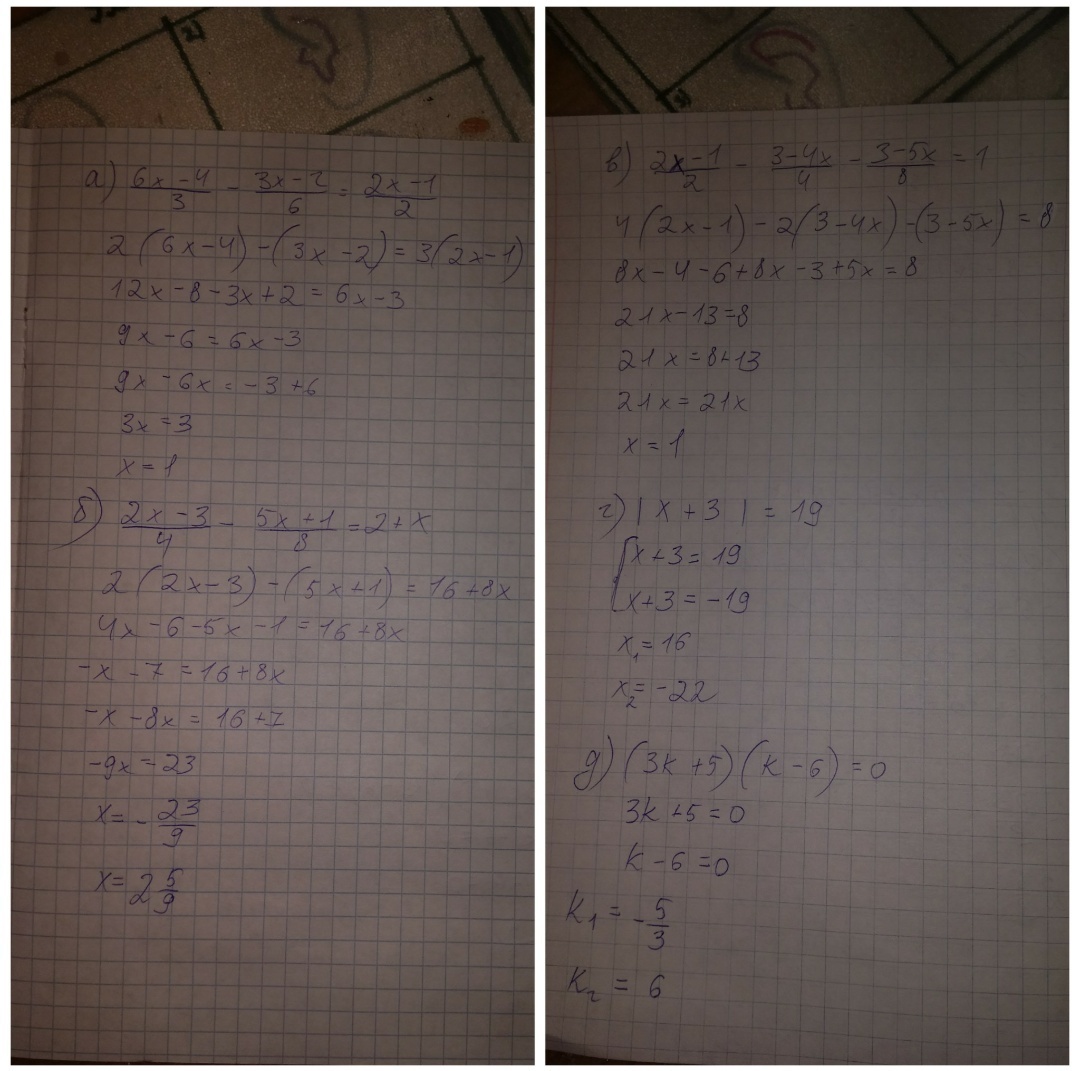 а) (6x-4)/3 - (3x-2)/6 = (2x-1)/2
2(6x-4)-(3x-2)=3(2x-1)
12x-8-3x+2=6x-3
9x-6=6x-3
9x-6x=-3+6
3x=3
x=1
б) (2x-3)/4 - (5x+1)/8 = 2+x
2(2x-3)-(5x+1)=16+8x
4x-6-5x-1=16+8x
-x-7=16+8x
-x-8x=16+7
-9x=23
x=-23/9
x=2 5/9
в) (2x-1)/2 - (3-4x)/4 - (3-5x)/8 = 1
4(2x-1)-2(3-4x)-(3-5x)=8
8x-4-6+8x-3+5x=8
21x-13=8
21x=8+13
21x=21x
x=1
г) |x+3|=19
[x+3=19
x+3=-19
x₁=16
x₂=-22
д) (3k+5)(k-6)=0
3k+5=0
k-6=0
k₁=-5/3
k₂=6